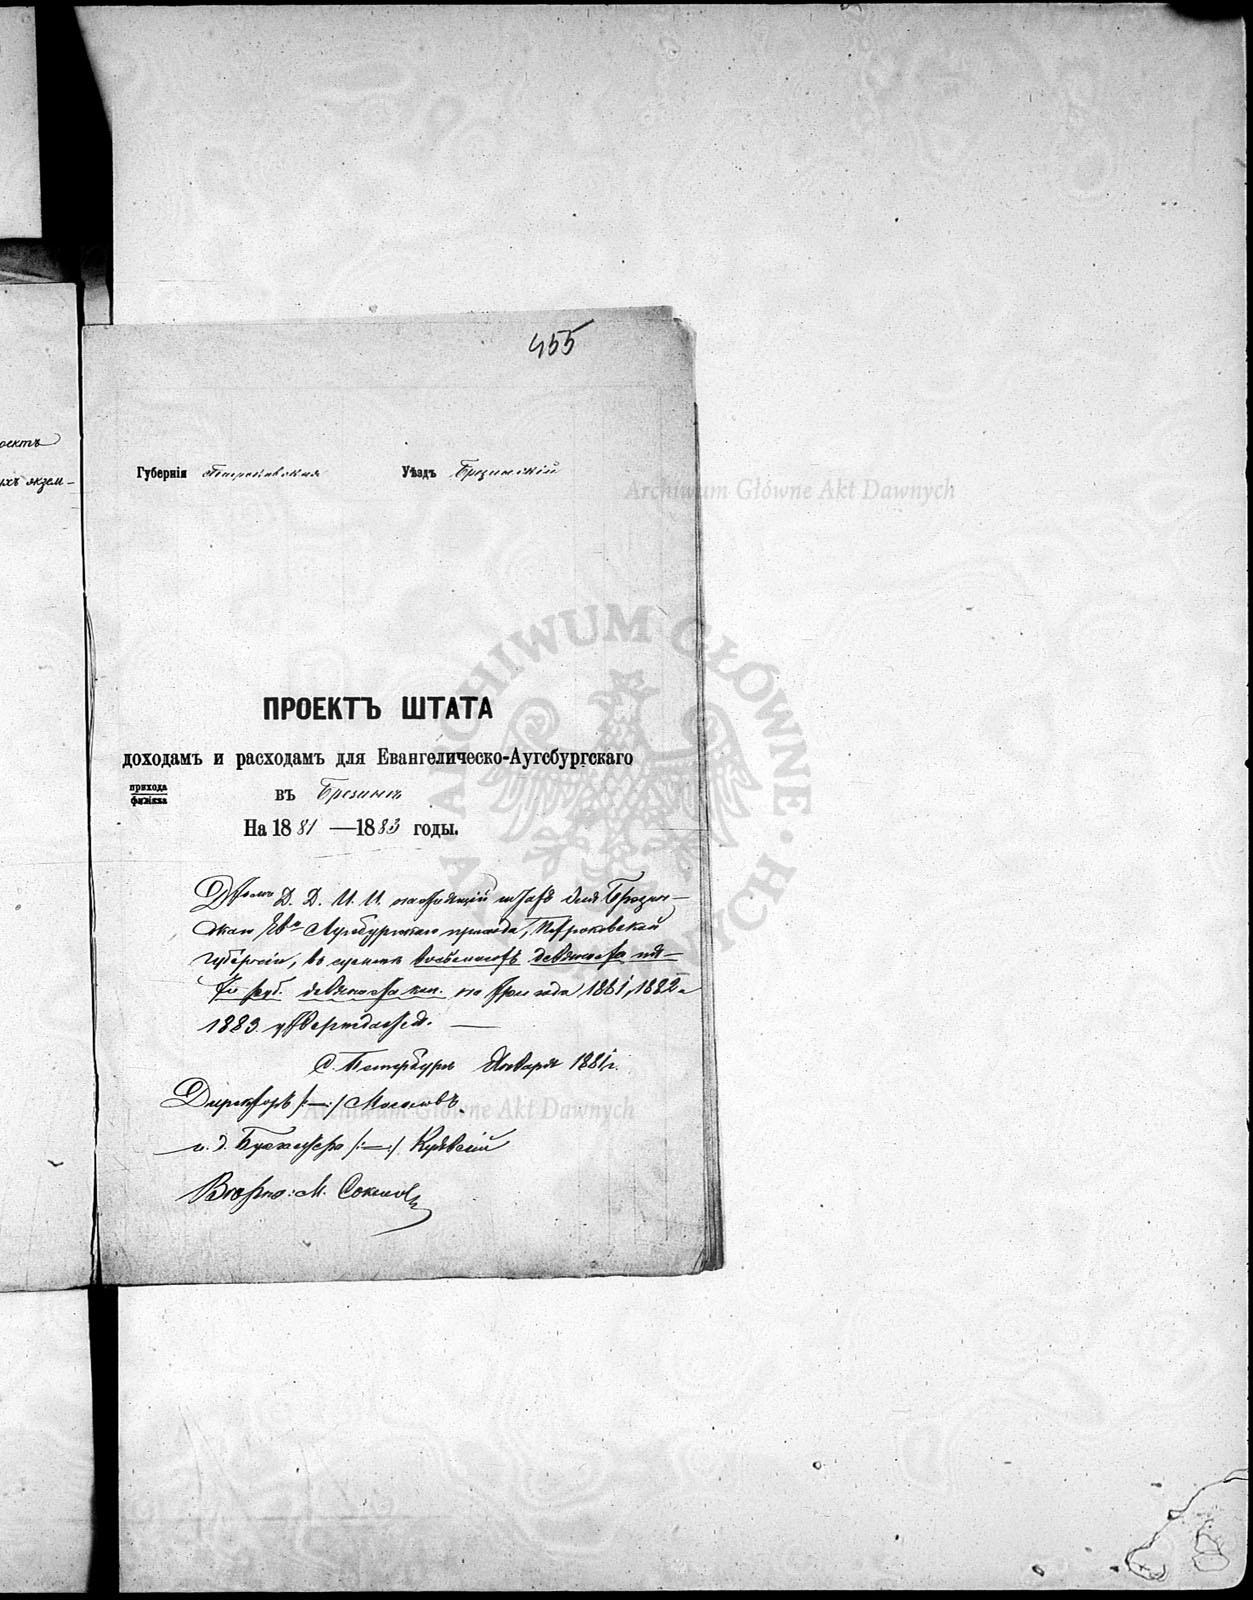 оектъ
ихъ экзем-
455
Губернія Петроковская Уѣздъ Брезинскій
ПРОЕКТЪ ШТАТА
доходамъ и расходамъ для Евангелическо-Аугсбургскаго
прихода
филіяла
въ Брезинѣ
На 1881 — 1883 годы.
Д. Д. И. И. настоящій штатъ для Брезин-
скаго Ев. Аугсбургскаго прихода, Петроковской
губерніи, въ суммѣ восемьсотъ девяноста пя-
ти руб. девяноста коп. на три года 1881, 1882 и
1883 утверждаетъ. —
С. Петербургъ Января 1881 г.
Директоръ /:—:/ Мосоловъ.
и. д. Бухгалтера /:—:/
Вѣрно: М. Соколовъ
Archiwum Główne Akt Dawnych
ARCHIWUM GŁÓWNE AKT DAWNYCH
Archiwum Główne Akt Dawnych